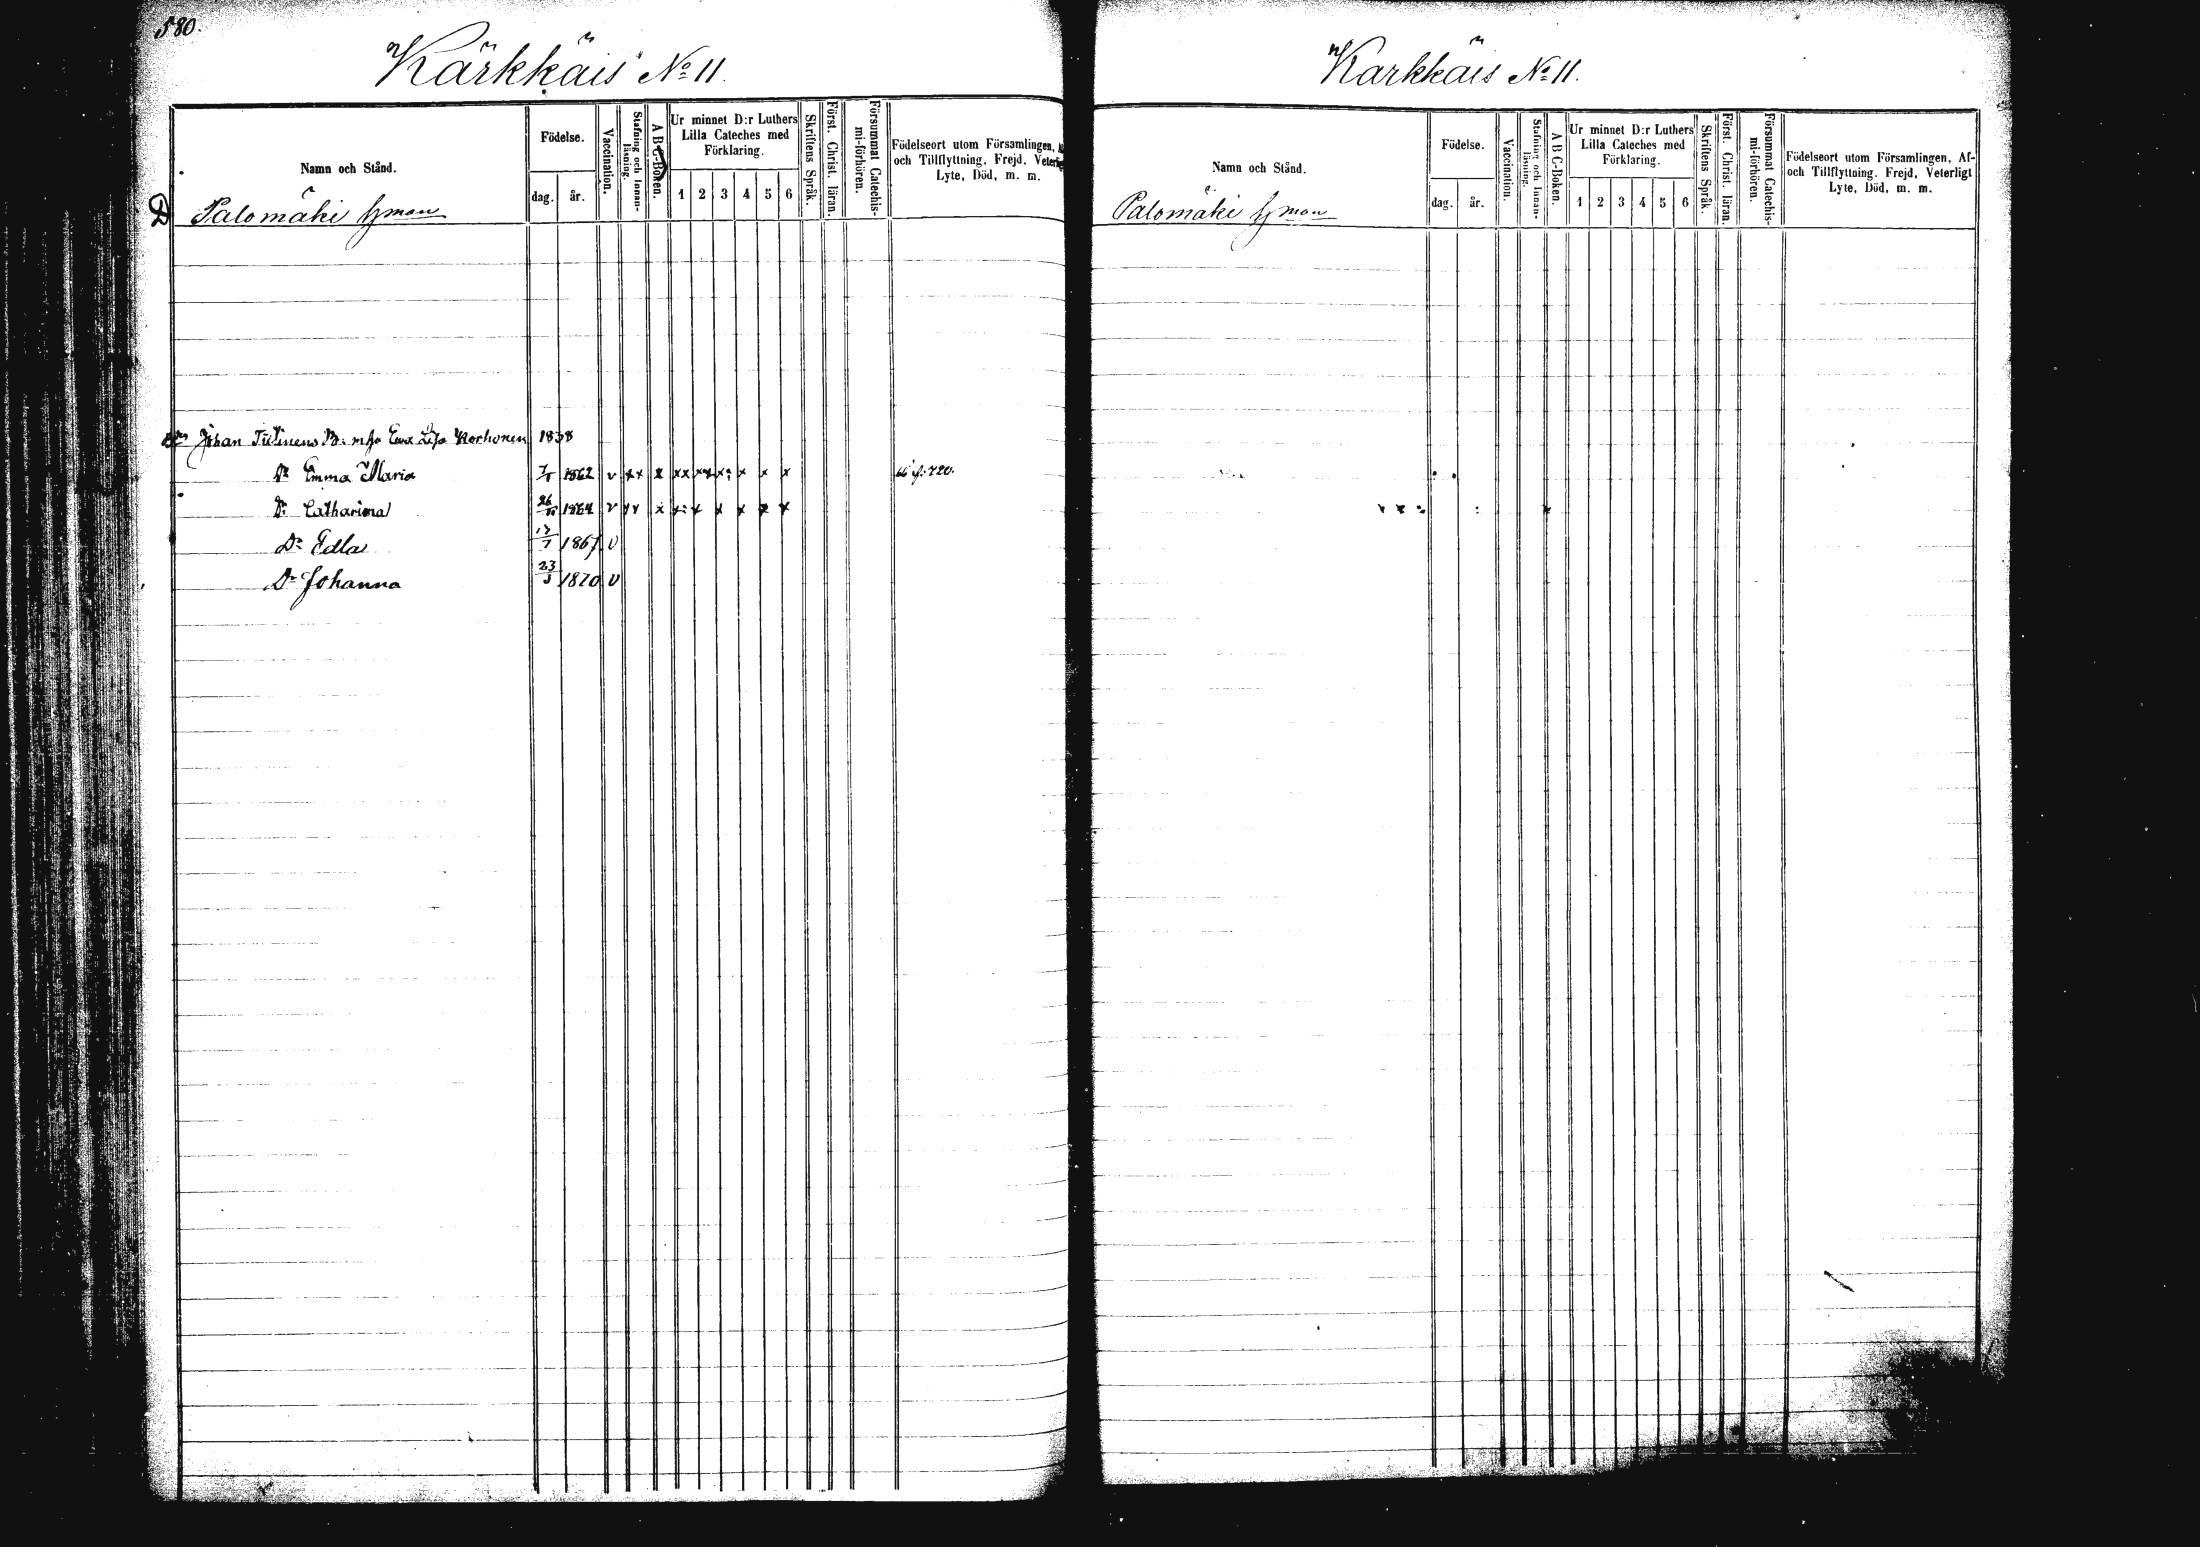 580.
Kärkkäis No 11.
Namn och Stånd.
Födelse.
dag. år.
Vaccination.
Stafning och Innan-läsning.
A B C-Boken.
Ur minnet D:r Luthers
Lilla Cateches med
Förklaring.
1 2 3 4 5 6
Skriftens Språk.
Först. Christ. läran.
Försummat Catechis-
mi-förhören.
Födelseort utom Församlingen,
och Tillflyttning. Frejd.
Lyte, Död, m. m.
D Palomäki
Johan Korhonen 1838
Dr Emma Maria 1862 v xx x xx x x x
Dr Catharina 26 1864 v x x x x x x
Dr Edla 1867 v
Dr Johanna 23 1870 v
Kärkkäis No 11.
Namn och Stånd.
Födelse.
dag. år.
Vaccination.
Stafning och Innan-läsning.
A B C-Boken.
Ur minnet D:r Luthers
Lilla Cateches med
Förklaring.
1 2 3 4 5 6
Skriftens Språk.
Först. Christ. läran.
Försummat Catechis-
mi-förhören.
Födelseort utom Församlingen, Af-
och Tillflyttning. Frejd, Veterligt
Lyte, Död, m. m.
Palomäki